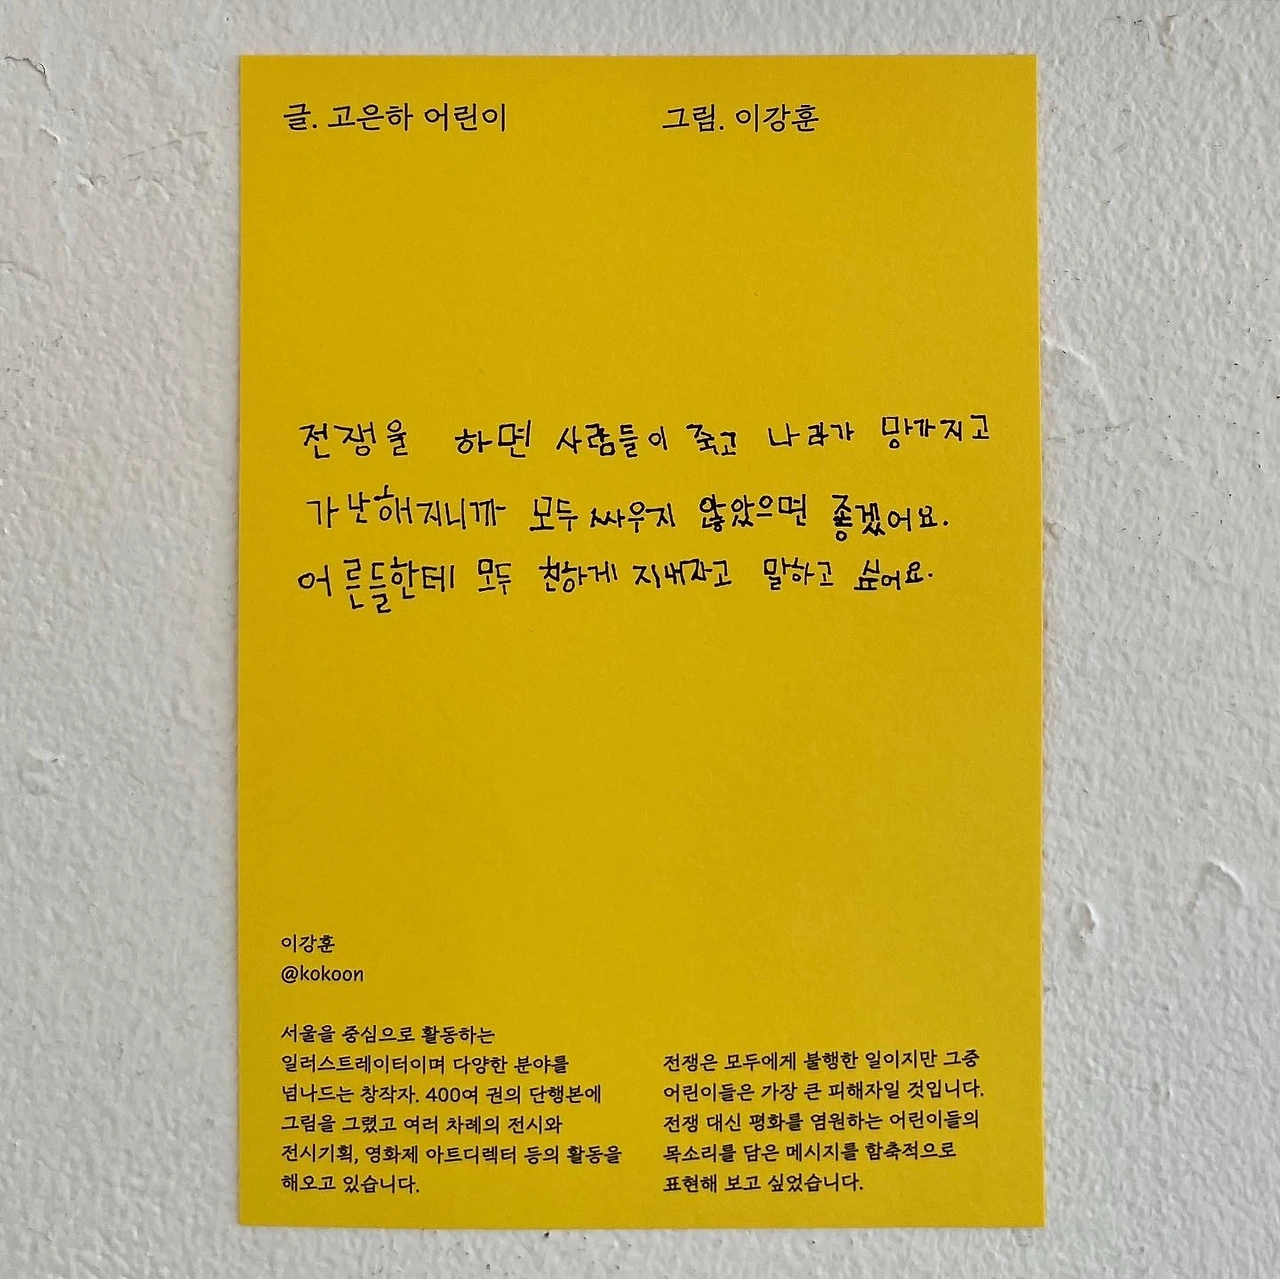 글. 고은하 어린이
그림. 이강훈
전쟁을 하면 사람들이 죽고 나라가 망가지고
가난해지니까 모두 싸우지 않았으면 좋겠어요.
어른들한테 모두 친하게 지내자고 말하고 싶어요.
이강훈
@kokoon
서울을 중심으로 활동하는
일러스트레이터이며 다양한 분야를
넘나드는 창작자. 400여 권의 단행본에
그림을 그렸고 여러 차례의 전시와
전시기획, 영화제 아트디렉터 등의 활동을
해오고 있습니다.
전쟁은 모두에게 불행한 일이지만 그중
어린이들은 가장 큰 피해자일 것입니다.
전쟁 대신 평화를 염원하는 어린이들의
목소리를 담은 메시지를 함축적으로
표현해 보고 싶었습니다.